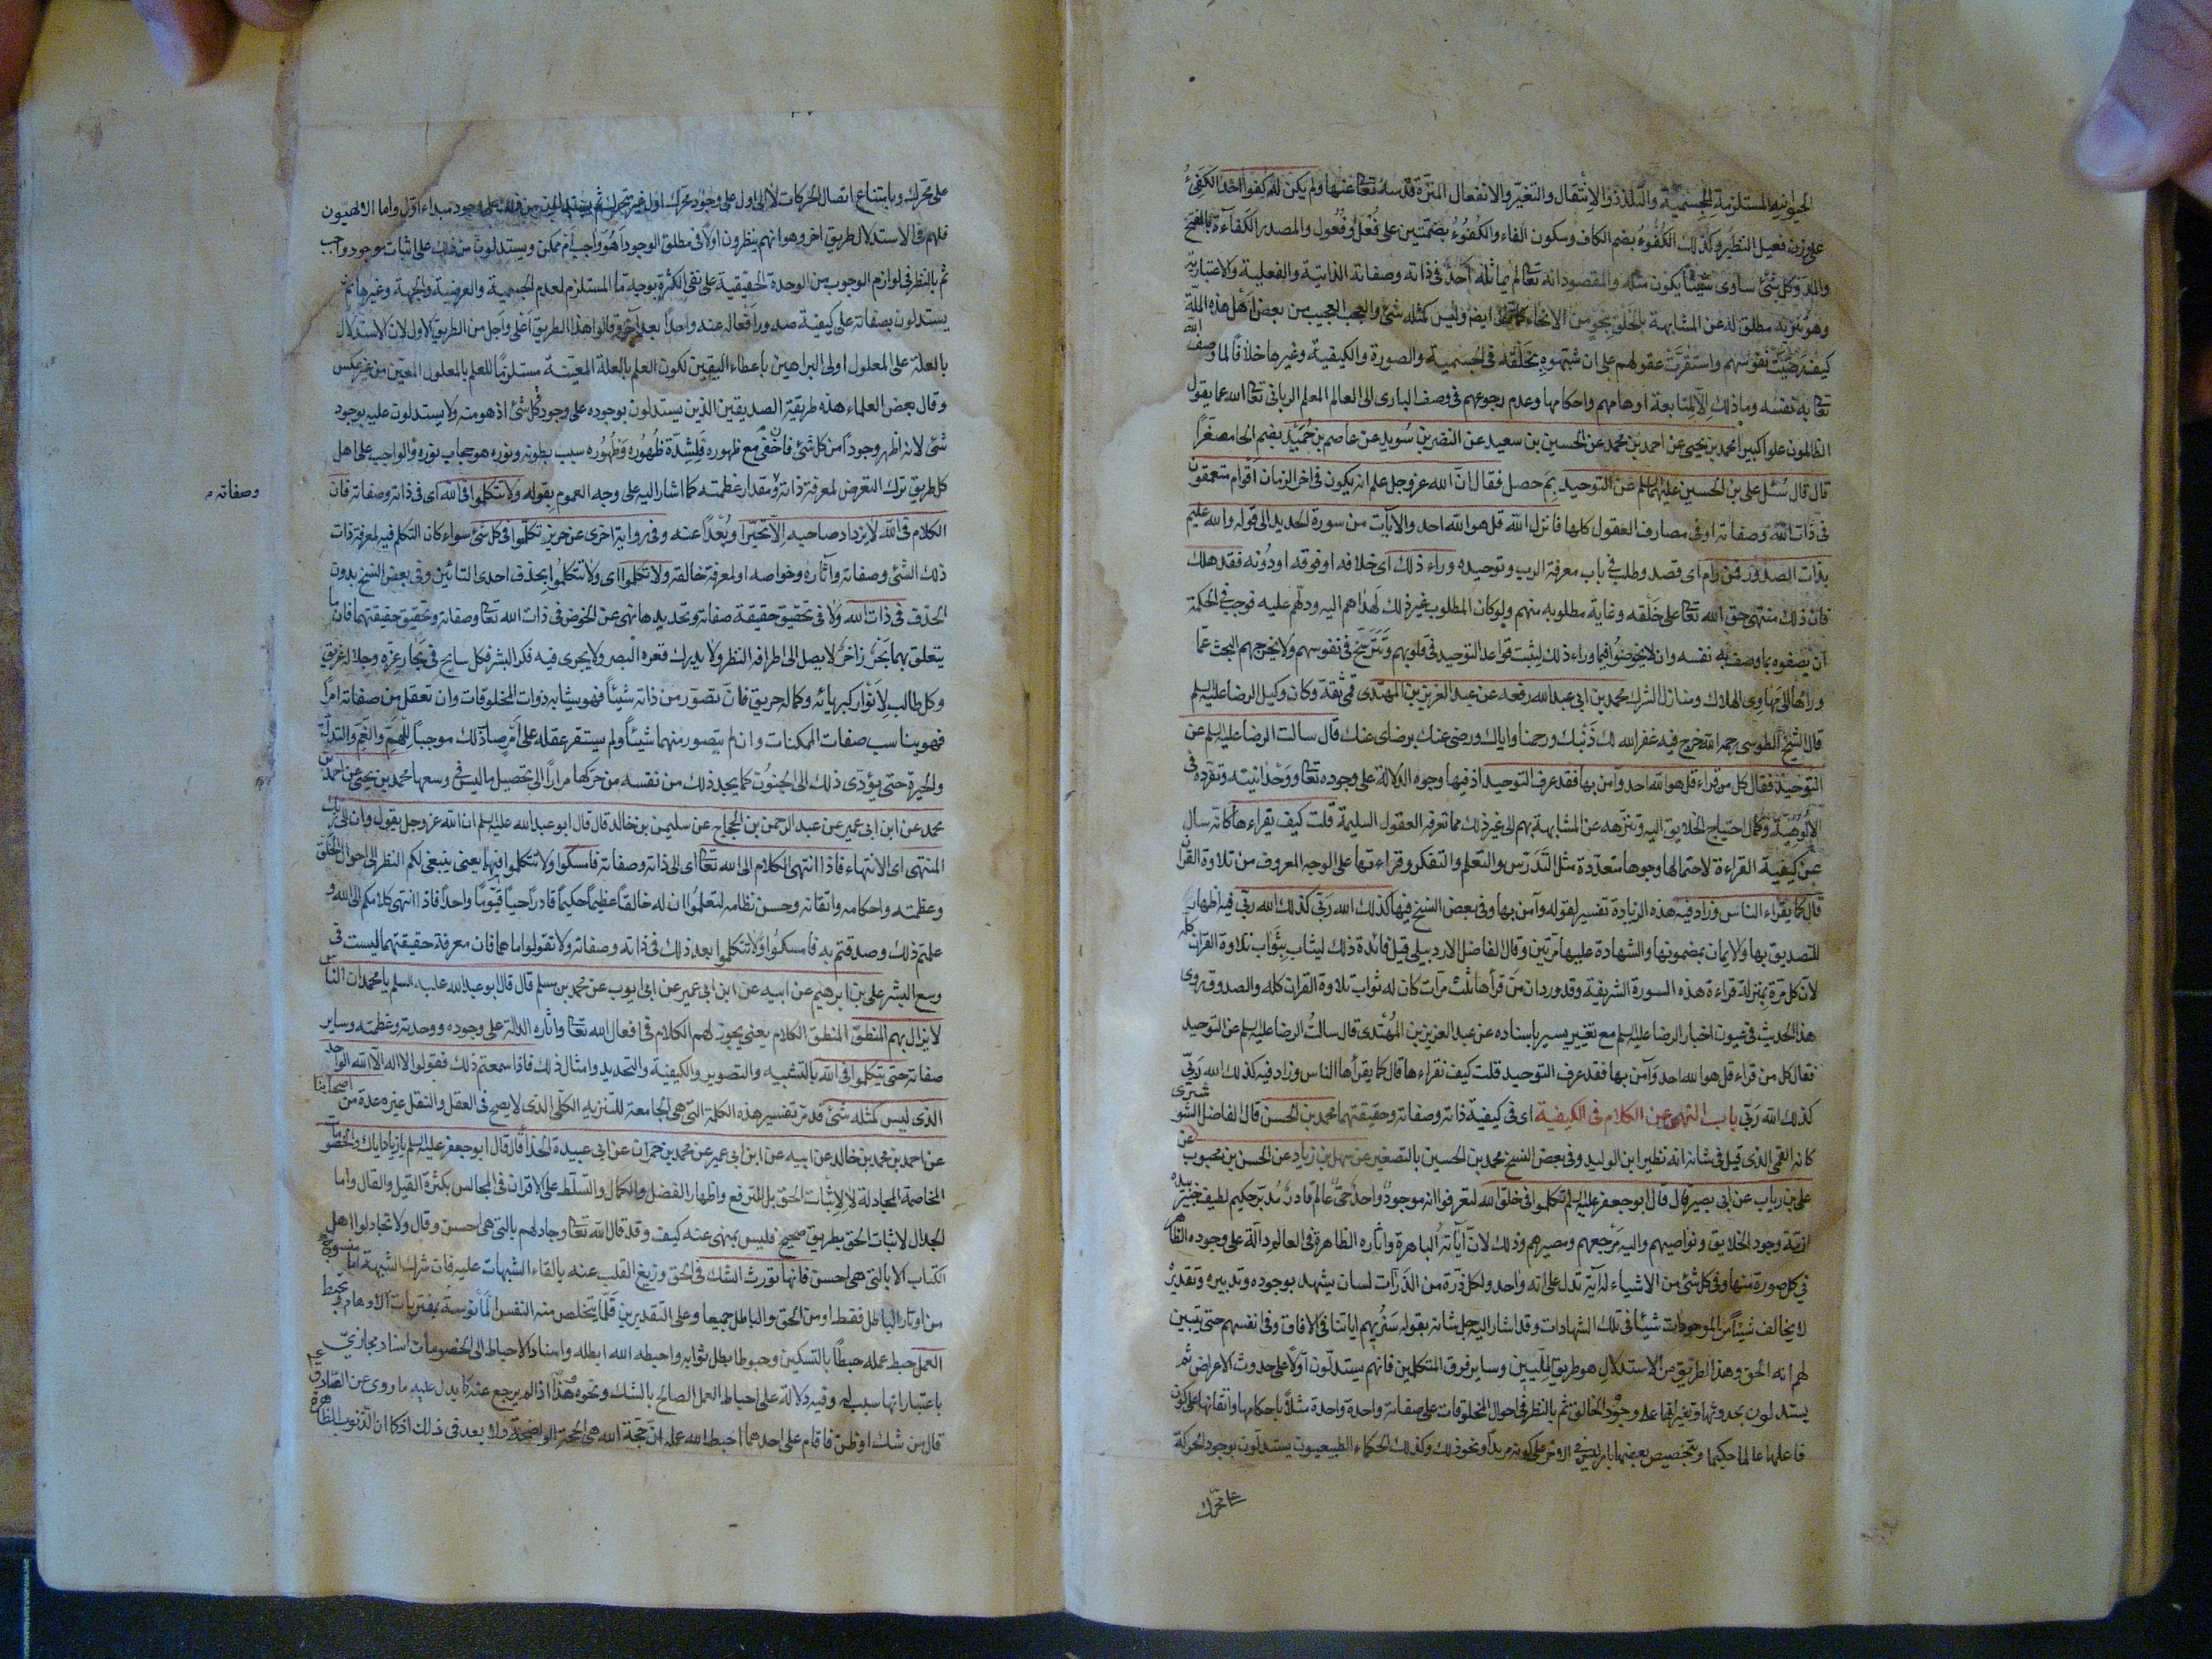 الحيوانية المستلزمة للجسمية والتلذذ والانتقال والتغير والانفعال المنزه قدسه تعالى عنها ولم يكن له كفوا احد الكفئ
على وزن فعيل النظير وكذلك الكفوء بضم الكاف وسكون الفاء والكفوء بضمتين على فُعْل وفُعُول والمصدر الكفاءة بالفتح
والمد وكل شئ ساوى شيئا يكون مثله والمقصود انه تعالى لم يماثله احد في ذاته وصفاته الذاتية والفعلية والاعتبارية
وهو تنزيه مطلق له عن المشابهة بالخلق بنحو من الانحاء ايض وليس كمثله شئ والعجب العجيب من بعض اهل هذه الملة
كيف رضيت نفوسهم واستقرت عقولهم على ان شبهوه بخلقه في الجسمية والصورة والكيفية وغيرها خلافا لما وصف الله
تعالى به نفسه وما ذلك الا لمتابعة اوهامهم واحكامها وعدم رجوعهم في وصف البارى الى العالم المعلم الرباني تعالى الله عما يقول
الظالمون علوا كبيرا محمد بن يحيى عن احمد بن محمد عن الحسين بن سعيد عن النضر بن سويد عن عاصم بن حميد بضم الحا مصغرا
قال قال سئل علي بن الحسين عليهما السلم عن التوحيد بم حصل فقال ان الله عز وجل علم انه يكون في اخر الزمان اقوام متعمقون
في ذات الله وصفاته او في مصارف العقول كلها فانزل الله قل هو الله احد والايات من سورة الحديد الى قوله والله عليم
بذات الصدور فمن رام اى قصد وطلب في باب معرفة الرب وتوحيده وراء ذلك اى خلافه او فوقه او دونه فقد هلك
فان ذلك منتهى حق الله تعالى على خلقه وغاية مطلوبه منهم ولو كان المطلوب غير ذلك لهداهم اليه ودلهم عليه فوجب في الحكمة
ان يصفوه بما وصف به نفسه وان لا يخوضوا فيما وراء ذلك ليثبت قواعد التوحيد في قلوبهم وتترسخ في نفوسهم ولا يخرجهم البحث عما
وراها الى مهاوى الهلاك ومنازل الشرك محمد بن ابي عبد الله رفعه عن عبد العزيز بن المهتدى قمي ثقة وكان وكيل الرضا عليه السلم
قال الشيخ الطوسي رحمه الله خرج فيه غفر الله لك ذنبك ورحمنا واياك ورضى عنك برضاى عنك قال سالت الرضا عليه السلم عن
التوحيد فقال كل من قراء قل هو الله احد وآمن بها فقد عرف التوحيد اذ فيها وجوه الدلالة على وجوده تعالى ووحدانيته وتفرده في
الالوهية وكمال احتياج الخلايق اليه وتنزهه عن المشابهة بهم الى غير ذلك مما تعرفه العقول السليمة قلت كيف يقراءها كانه سال
عن كيفية القراءة لاحتمالها وجوها متعددة مثل التدرس والتعلم والتفكر وقراءتها على الوجه المعروف من تلاوة القران
قال كما يقراء الناس وزاد فيه هذه الزيادة تفسير لقوله وآمن بها وفي بعض النسخ فيها كذلك الله ربي كذلك الله ربي فيه اظهار
للتصديق بها والايمان بمضمونها والشهادة عليها مرتين وقال الفاضل الاردبيلي قيل فائدة ذلك ليثاب بثواب تلاوة القران كله
لان كل مرة بمنزلة قراءة هذه السورة الشريفة وقد ورد ان من قرأها ثلث مرات كان له ثواب تلاوة القران كله والصدوق روى
هذا الحديث في عيون اخبار الرضا عليه السلم مع تغيير يسير باسناده عن عبد العزيز بن المهتدى قال سالت الرضا عليه السلم عن التوحيد
فقال كل من قراء قل هو الله احد وآمن بها فقد عرف التوحيد قلت كيف نقراءها قال كما يقرأها الناس وزاد فيه كذلك الله ربي
كذلك الله ربي باب النهى عن الكلام في الكيفية اى في كيفية ذاته وصفاته وحقيقتهما محمد بن الحسن قال الفاضل الشوشترى
كانه القمي الذى قيل في شانه انه نظير ابن الوليد وفي بعض النسخ محمد بن الحسين بالتصغير عن سهل بن زياد عن الحسن بن محبوب عن
علي بن رياب عن ابي بصير قال قال ابو جعفر عليه السلم تكلموا في خلق الله لتعرفوا انه موجود واحد حي عالم قادر مدبر حكيم لطيف خبير بيده
ازمة وجود الخلايق ونواصيهم واليه مرجعهم ومصيرهم وذلك لان آياته الباهرة واثاره الظاهرة في العالم دالة على وجوده الظاهر
في كل صورة منها وفي كل شئ من الاشياء له آية تدل على انه واحد ولكل ذرة من الذرات لسان يشهد بوجوده وتدبيره وتقديره
لا يخالف شيئا من الموجودات شيئا في تلك الشهادات وقد اشار اليه جل شانه بقوله سنريهم اياتنا في الافاق وفي انفسهم حتى يتبين
لهم انه الحق وهذا الطريق من الاستدلال هو طريق المليين وساير فرق المتكلمين فانهم يستدلون اولا على حدوث الاعراض ثم
يستدلون بحدوثها وتغيراتها على وجود الخالق ثم بالنظر في احوال المخلوقات على صفاته واحدة واحدة مثلا باحكامها واتقانها على كون
فاعلها عالما حكيما وبتخصيص بعضها بامر ليس في الاخر على كونه مريدا ونحو ذلك وكذلك الحكماء الطبيعيون يستدلون بوجود الحركة
على محرك
على محرك وبامتناع اتصال الحركات لا الى اول على وجود محرك اول غير متحرك ثم يستدلون من ذلك على وجود مبداء اول واما الالهيون
فلهم في الاستدلال طريق اخر وهو انهم ينظرون اولا في مطلق الوجود اهو واجب ام ممكن ويستدلون من ذلك على اثبات موجود واجب
ثم بالنظر في لوازم الوجوب من الوحدة الحقيقية على نفى الكثرة بوجه ما المستلزم لعدم الجسمية والعرضية والجهة وغيرها ثم
يستدلون بصفاته على كيفية صدور افعاله عنه واحدا بعد آخر وقالوا هذا الطريق اعلى واجل من الطريق الاول لان الاستدلال
بالعلة على المعلول اولى البراهين باعطاء اليقين لكون العلم بالعلة المعينة مستلزما للعلم بالمعلول المعين من غير عكس
وقال بعض العلماء هذه طريقة الصديقين الذين يستدلون بوجوده على وجود كل شئ اذ هو منه ولا يستدلون عليه بوجود
شئ لانه اظهر وجودا من كل شئ فان خفى مع ظهوره فلشدة ظهوره وظهوره سبب بطونه ونوره هو حجاب نوره والواجب على اهل
كل طريق ترك التعرض لمعرفة ذاته ومقدار عظمته كما اشار اليه على وجه العموم بقوله ولا تتكلموا في الله اى في ذاته وصفاته فان
وصفاته م
الكلام في الله لا يزداد صاحبه الا تحيرا وبعدا عنه وفي رواية اخرى عن حريز تكلموا في كل شئ سواء كان التكلم فيه لمعرفة ذات
ذلك الشئ وصفاته وآثاره وخواصه او لمعرفة خالقه ولا تكلموا اى ولا تتكلموا بحذف احدى التائين وفي بعض النسخ بدون
الحذف في ذات الله ولا في تحقيق حقيقة صفاته وتحديدها نهى عن الخوض في ذات الله تعالى وصفاته وتحقيق حقيقتهما فان ما
يتعلق بهما بحر زاخر لا يصل الى اطرافه النظر ولا يدرك قعره البصر ولا يجرى فيه فكر البشر فكل سابح في بحار عزه وجلاله غريق
وكل طالب لانوار كبريائه وكماله حريق فان تصور من ذاته شيئا فهو يشابه ذوات المخلوقات وان تعقل من صفاته امرا
فهو يناسب صفات الممكنات وان لم يتصور منهما شيئا ولم يستقر عقله على امر صار ذلك موجبا للهم والغم والتدله
والحيرة حتى يؤدى ذلك الى الجنون كما يجد ذلك من نفسه من حركها مرارا الى تحصيل ما ليس في وسعها محمد بن يحيى عن احمد بن
محمد عن ابن ابي عمير عن عبد الرحمن بن الحجاج عن سليمن بن خالد قال قال ابو عبد الله عليه السلم ان الله عز وجل يقول وان الى ربك
المنتهى اى الانتهاء فاذا انتهى الكلام الى الله تعالى اى الى ذاته وصفاته فامسكوا ولا تتكلموا فيها يعنى ينبغي لكم النظر الى احوال الخلق
وعظمته واحكامه واتقانه وحسن نظامه لتعلموا ان له خالقا عظيما حكيما قادرا حيا قيوما واحدا فاذا انتهى كلامكم الى الله و
علمتم ذلك وصدقتم به فامسكوا ولا تتكلموا بعد ذلك في ذاته وصفاته ولا تقولوا ما هما فان معرفة حقيقتهما ليست في
وسع البشر علي بن ابرهيم عن ابيه عن ابن ابي عمير عن ابي ايوب عن محمد بن مسلم قال قال ابو عبد الله عليه السلم يا محمد ان الناس
لا يزال بهم المنطق المنطق الكلام يعنى يجوز لهم الكلام في افعال الله تعالى واثاره الدالة على وجوده ووحدته وعظمته وساير
صفاته حتى يتكلموا في الله بالتشبيه والتصوير والكيفية والتحديد وامثال ذلك فاذا سمعتم ذلك فقولوا لا اله الا الله الواحد
الذى ليس كمثله شئ قد مر تفسير هذه الكلمة التى هى الجامعة للتنزيه الكلى الذى لا يصح في العقل والنقل غيره عدة من اصحابنا
عن احمد بن محمد بن خالد عن ابيه عن ابن ابي عمير عن محمد بن حمران عن ابي عبيدة الحذا قال قال ابو جعفر عليه السلم يا زياد اياك والخصومات
المخاصمة المجادلة لا لاثبات الحق بل للترفع واظهار الفضل والكمال والتسلط على الاقران في المجالس بكثرة القيل والقال واما
الجدال لاثبات الحق بطريق صحيح فليس بمنهى عنه كيف وقد قال الله تعالى وجادلهم بالتى هى احسن وقال ولا تجادلوا اهل
الكتاب الا بالتى هى احسن فانها تورث الشك في الحق وزيغ القلب عنه بالقاء الشبهات عليه فان شرك الشبهة اما منسوج
من اوتار الباطل فقط او من الحق والباطل جميعا وعلى التقديرين قلما يتخلص منه النفس المأنوسة بمفتريات الاوهام وتحبط
العمل حبط عمله حبطا بالتسكين وحبوطا بطل ثوابه واحبطه الله ابطله واسناد الاحباط الى الخصومات اسناد مجازى
باعتبار انها سبب له وفيه دلالة على احباط العمل الصالح بالشك ونحوه وهذا اذا لم يرجع عنه كما يدل عليه ما روى عن الصادق ع م
قال من شك او ظن فاقام على احدهما احبط الله عمله ان حجة الله هى الحجة الواضحة ولا بعد في ذلك اذ كما ان الذنوب الظاهرة